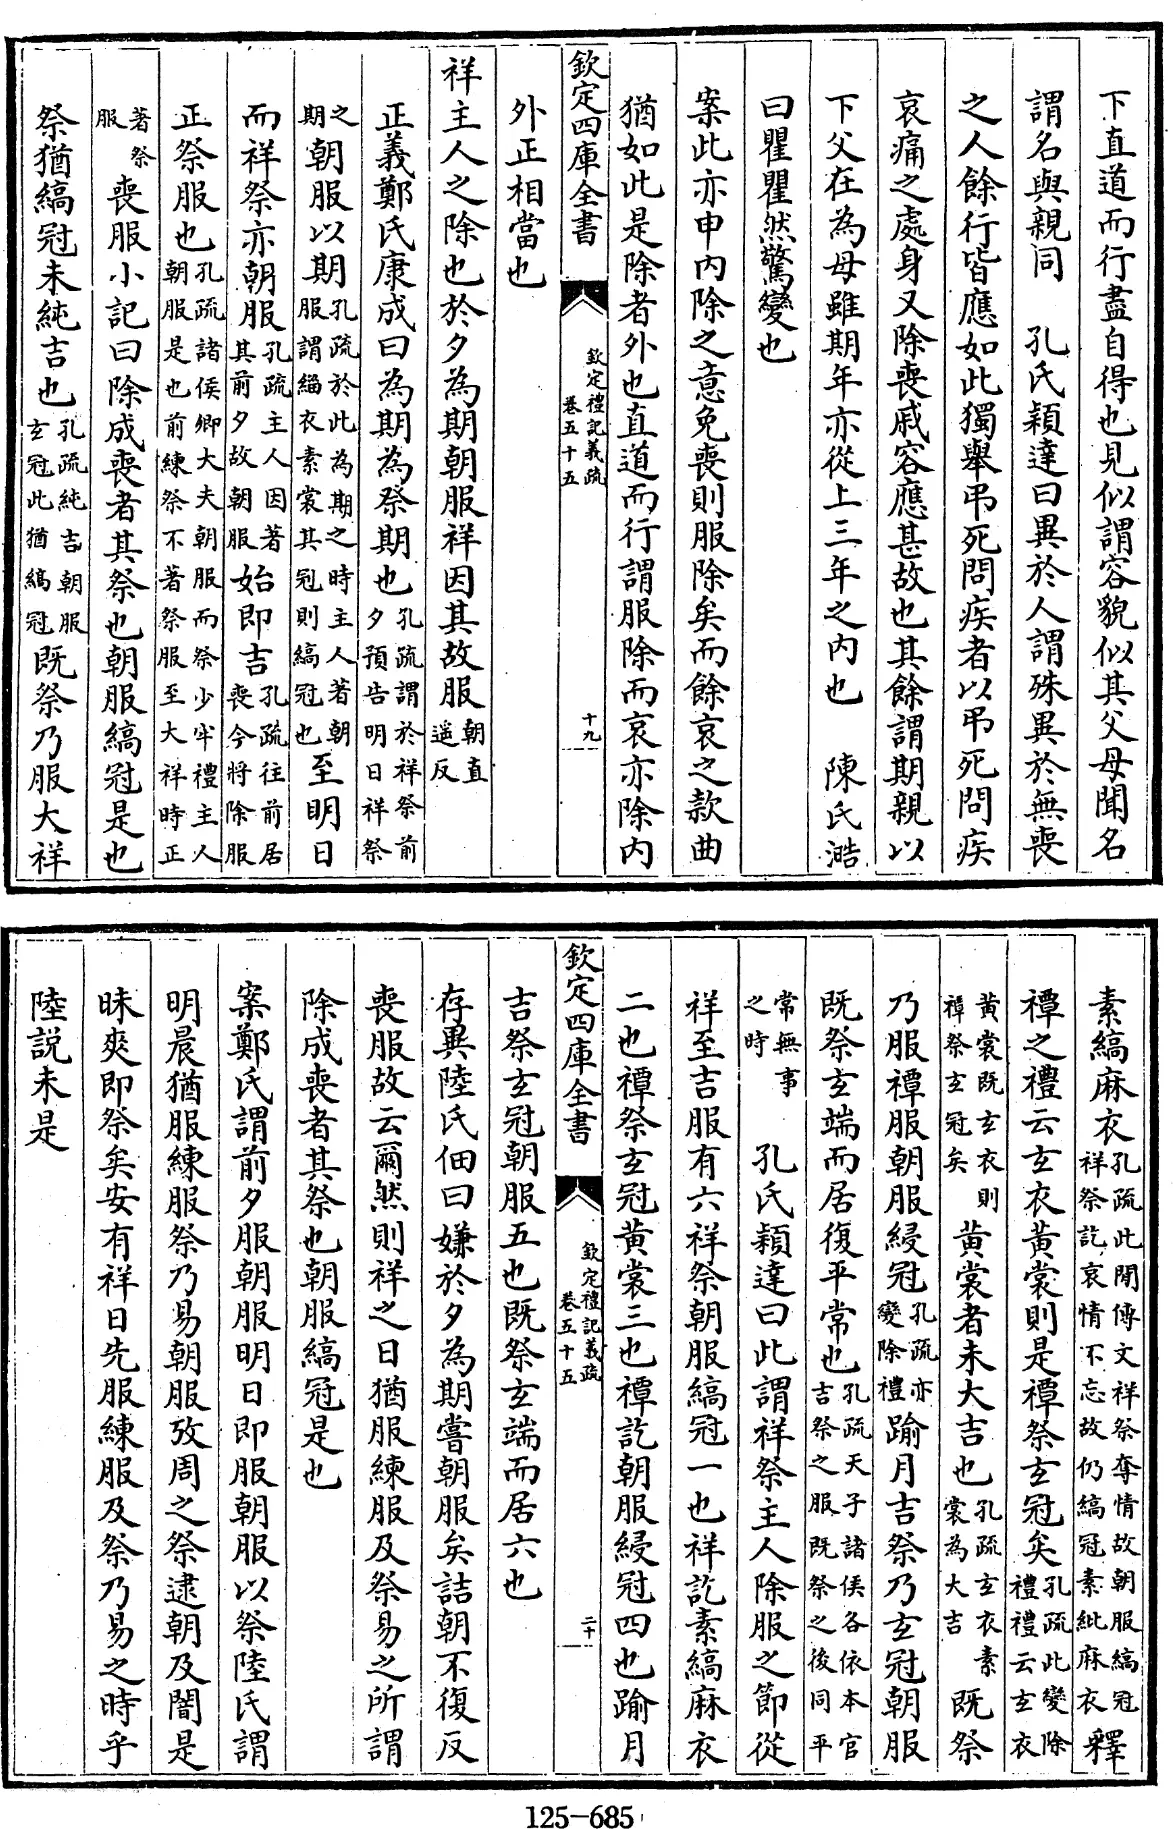 下直道而行盡自得也見似謂容貌似其父母聞名
謂名與親同　孔氏穎達曰異於人謂殊異於無喪
之人餘行皆應如此獨舉弔死問疾者以弔死問疾
哀痛之處身又除喪戚容應甚故也其餘謂期親以
下父在為母雖期年亦從上三年之內也　陳氏澔
曰瞿瞿然驚變也
案此亦申內除之意免喪則服除矣而餘哀之款曲
猶如此是除者外也直道而行謂服除而哀亦除內
欽定四庫全書　欽定禮記義疏　卷五十五　十九
外正相當也
祥主人之除也於夕為期朝服祥因其故服朝直遥反
正義鄭氏康成曰為期為祭期也孔疏謂於祥祭前夕預告明日祥祭
之期朝服以期孔疏於此為期之時主人著朝服謂緇衣素裳其冠則縞冠也至明日
而祥祭亦朝服孔疏主人因著其前夕故朝服始即吉孔疏往前居喪今將除服
正祭服也孔疏諸侯卿大夫朝服而祭少牢禮主人朝服是也前練祭不著祭服至大祥時正
著祭服　喪服小記曰除成喪者其祭也朝服縞冠是也
祭猶縞冠未純吉也孔疏純吉朝服玄冠此猶縞冠既祭乃服大祥
素縞麻衣孔疏此閒傳文祥祭奪情故朝服縞冠祥祭訖哀情不忘故仍縞冠素紕麻衣釋
禫之禮云玄衣黃裳則是禫祭玄冠矣孔疏此變除禮禮云玄衣
黃裳既玄衣則禫祭玄冠矣　黃裳者未大吉也孔疏玄衣素裳為大吉　既祭
乃服禫服朝服綅冠孔疏亦變除禮踰月吉祭乃玄冠朝服
既祭玄端而居復平常也孔疏天子諸侯各依本官吉祭之服既祭之後同平
常無事之時　孔氏穎達曰此謂祥祭主人除服之節從
祥至吉服有六祥祭朝服縞冠一也祥訖素縞麻衣
二也禫祭玄冠黃裳三也禫訖朝服綅冠四也踰月
欽定四庫全書　欽定禮記義疏　卷五十五　二十
吉祭玄冠朝服五也既祭玄端而居六也
存異陸氏佃曰嫌於夕為期嘗朝服矣詰朝不復反
喪服故云爾然則祥之日猶服練服及祭易之所謂
除成喪者其祭也朝服縞冠是也
案鄭氏謂前夕服朝服明日即服朝服以祭陸氏謂
明晨猶服練服祭乃易朝服攷周之祭逮朝及闇是
昧爽即祭矣安有祥日先服練服及祭乃易之時乎
陸說未是
125-685